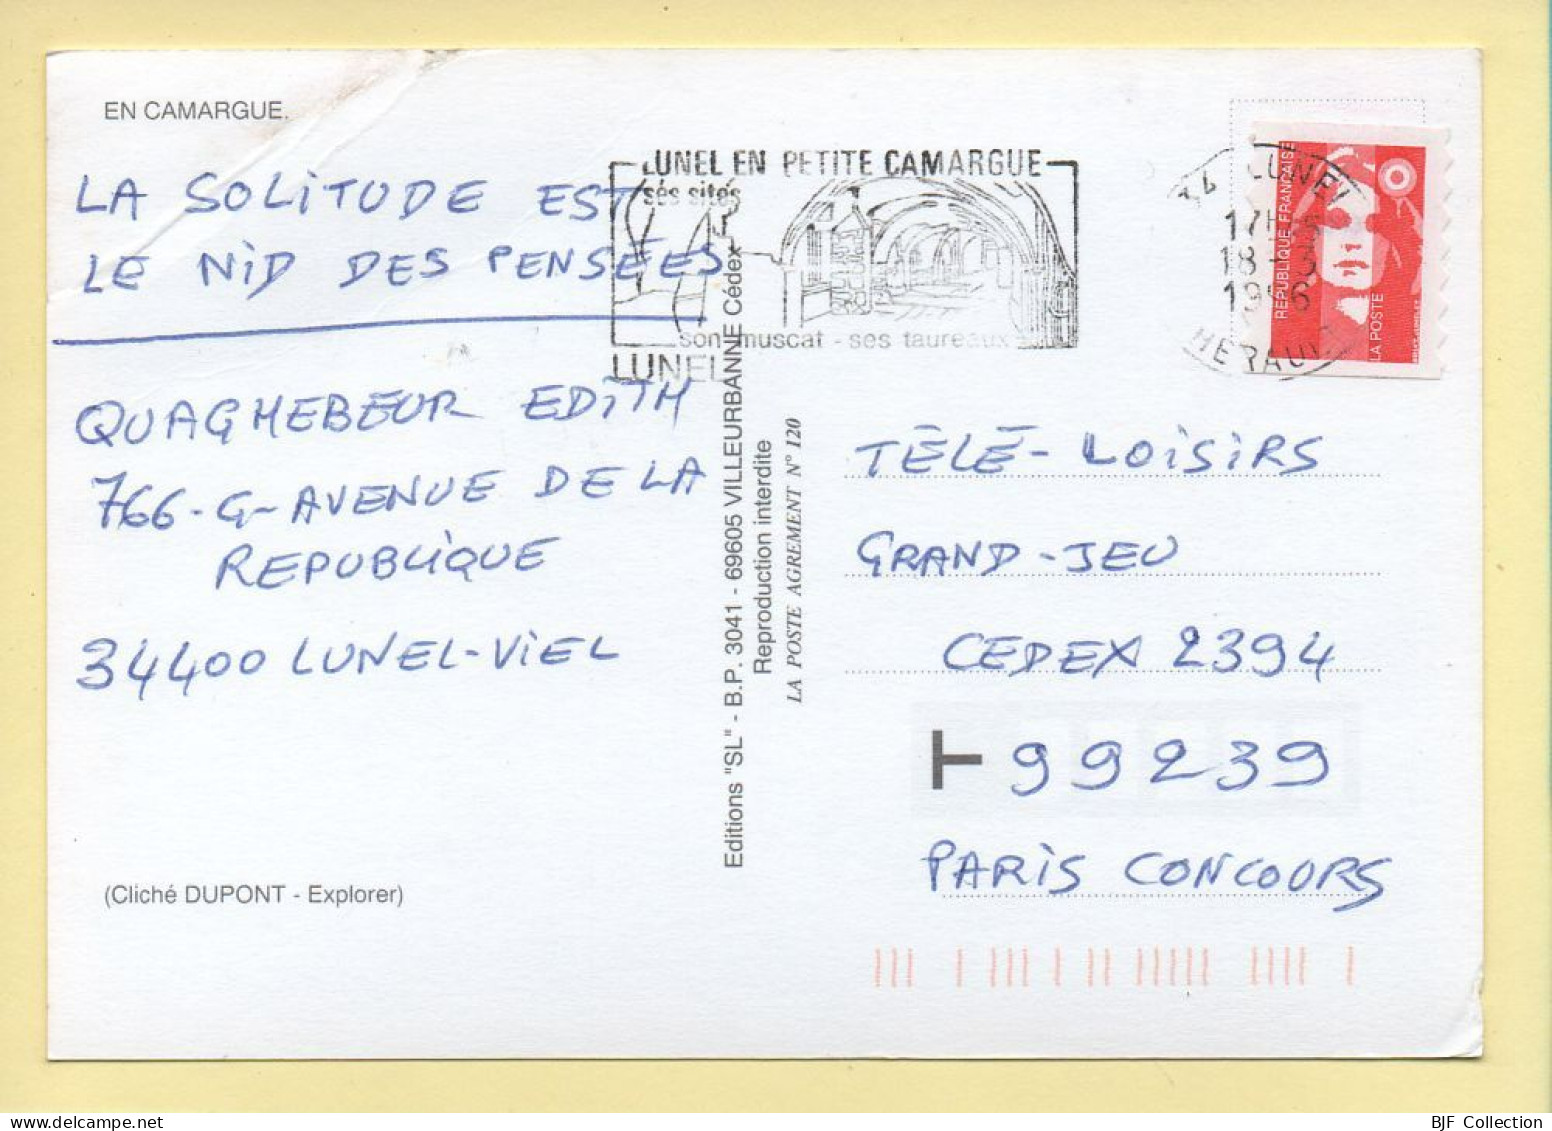 EN CAMARGUE.
LA SOLITUDE EST
LE NID DES PENSÉES
QUAGHEBEUR EDITH
766-G-AVENUE DE LA
REPUBLIQUE
34400 LUNEL-VIEL
(Cliché DUPONT - Explorer)
LUNEL EN PETITE CAMARGUE
ses sites
son muscat - ses taureaux
LUNEL
Editions "SL" - B.P. 3041 - 69605 VILLEURBANNE Cédex
Reproduction interdite
LA POSTE AGREMENT N° 120
34 LUNEL
18-3
HERAULT
REPUBLIQUE FRANÇAISE
LA POSTE
TÉLÉ-LOISIRS
GRAND-JEU
CEDEX 2394
T 99239
PARIS CONCOURS
BJF Collection